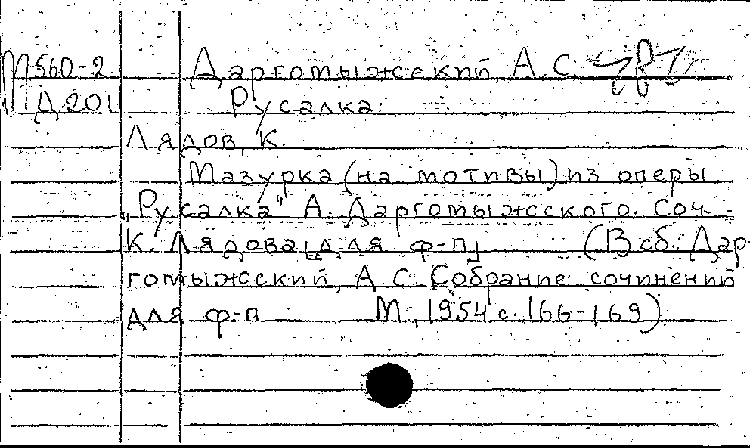 М560-2 Даргомыжский, А. С.
Д201 Русалка.
Лядов, К.
Мазурка (на мотивы) из оперы
"Русалка" А. Даргомыжского. Соч.
К. Лядова [для ф-п] (В сб: Дар-
гомыжский, А. С. Собрание сочинений
для ф-п М., 1954 с. 166-169)